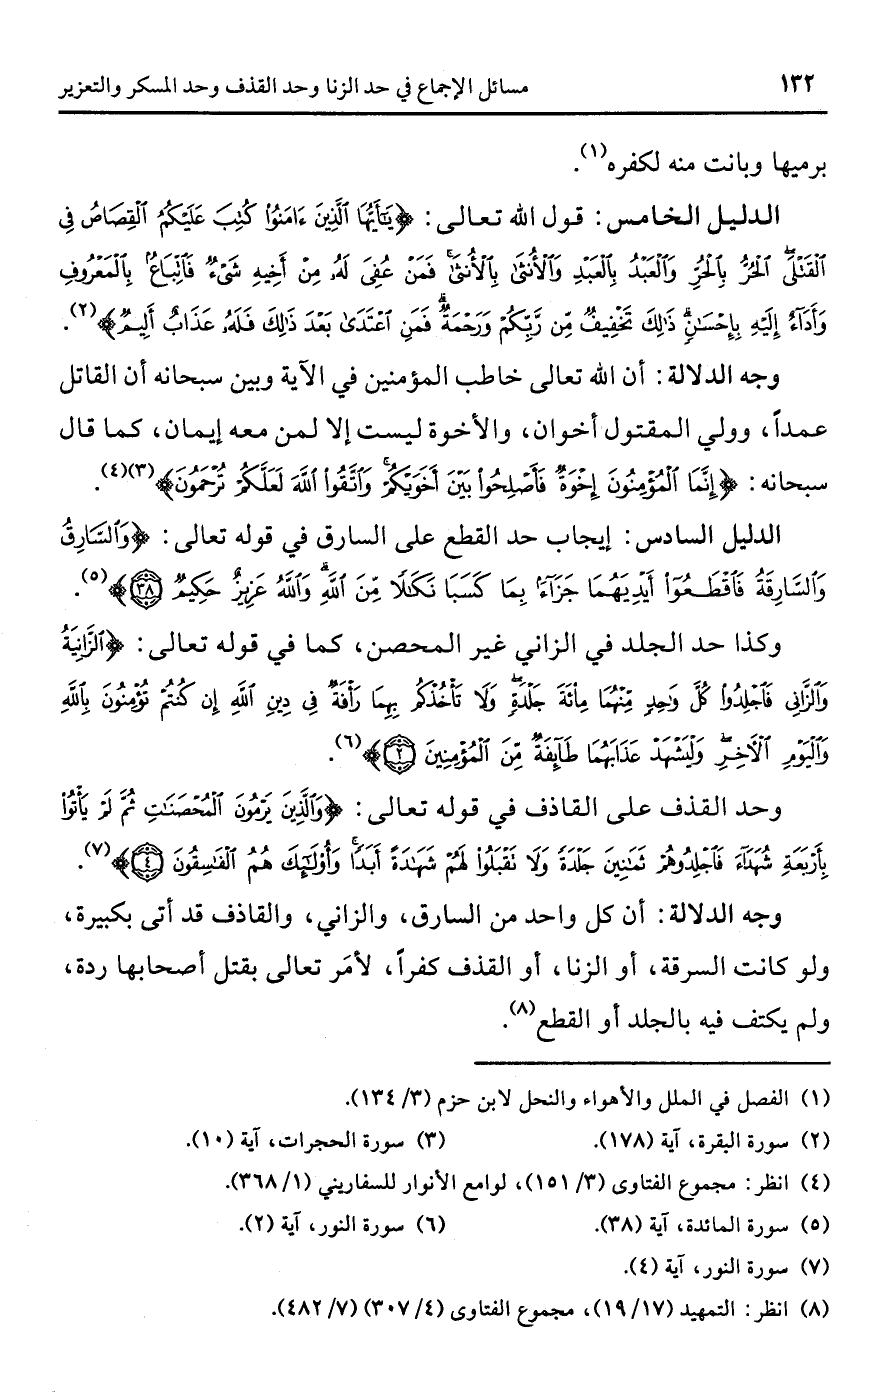 ١٣٢ مسائل الإجماع في حد الزنا وحد القذف وحد المسكر والتعزير
برميها وبانت منه لكفره(١).
الدليل الخامس: قول الله تعالى: ﴿يَٰٓأَيُّهَا ٱلَّذِينَ ءَامَنُوا۟ كُتِبَ عَلَيْكُمُ ٱلْقِصَاصُ فِى
ٱلْقَتْلَى ۖ ٱلْحُرُّ بِٱلْحُرِّ وَٱلْعَبْدُ بِٱلْعَبْدِ وَٱلْأُنثَىٰ بِٱلْأُنثَىٰ ۚ فَمَنْ عُفِىَ لَهُۥ مِنْ أَخِيهِ شَىْءٌ فَٱتِّبَاعٌۢ بِٱلْمَعْرُوفِ
وَأَدَآءٌ إِلَيْهِ بِإِحْسَٰنٍ ۗ ذَٰلِكَ تَخْفِيفٌ مِّن رَّبِّكُمْ وَرَحْمَةٌ ۗ فَمَنِ ٱعْتَدَىٰ بَعْدَ ذَٰلِكَ فَلَهُۥ عَذَابٌ أَلِيمٌ﴾(٢).
وجه الدلالة: أن الله تعالى خاطب المؤمنين في الآية وبين سبحانه أن القاتل
عمداً، وولي المقتول أخوان، والأخوة ليست إلا لمن معه إيمان، كما قال
سبحانه: ﴿إِنَّمَا ٱلْمُؤْمِنُونَ إِخْوَةٌ فَأَصْلِحُوا۟ بَيْنَ أَخَوَيْكُمْ ۚ وَٱتَّقُوا۟ ٱللَّهَ لَعَلَّكُمْ تُرْحَمُونَ﴾(٣)(٤).
الدليل السادس: إيجاب حد القطع على السارق في قوله تعالى: ﴿وَٱلسَّارِقُ
وَٱلسَّارِقَةُ فَٱقْطَعُوٓا۟ أَيْدِيَهُمَا جَزَآءًۢ بِمَا كَسَبَا نَكَٰلًا مِّنَ ٱللَّهِ ۗ وَٱللَّهُ عَزِيزٌ حَكِيمٌ ٣٨﴾(٥).
وكذا حد الجلد في الزاني غير المحصن، كما في قوله تعالى: ﴿ٱلزَّانِيَةُ
وَٱلزَّانِى فَٱجْلِدُوا۟ كُلَّ وَٰحِدٍ مِّنْهُمَا مِا۟ئَةَ جَلْدَةٍ ۖ وَلَا تَأْخُذْكُم بِهِمَا رَأْفَةٌ فِى دِينِ ٱللَّهِ إِن كُنتُمْ تُؤْمِنُونَ بِٱللَّهِ
وَٱلْيَوْمِ ٱلْأَخِرِ ۖ وَلْيَشْهَدْ عَذَابَهُمَا طَآئِفَةٌ مِّنَ ٱلْمُؤْمِنِينَ ٢﴾(٦).
وحد القذف على القاذف في قوله تعالى: ﴿وَٱلَّذِينَ يَرْمُونَ ٱلْمُحْصَنَٰتِ ثُمَّ لَمْ يَأْتُوا۟
بِأَرْبَعَةِ شُهَدَآءَ فَٱجْلِدُوهُمْ ثَمَٰنِينَ جَلْدَةً وَلَا تَقْبَلُوا۟ لَهُمْ شَهَٰدَةً أَبَدًا ۚ وَأُو۟لَٰٓئِكَ هُمُ ٱلْفَٰسِقُونَ ٤﴾(٧).
وجه الدلالة: أن كل واحد من السارق، والزاني، والقاذف قد أتى بكبيرة،
ولو كانت السرقة، أو الزنا، أو القذف كفراً، لأمَر تعالى بقتل أصحابها ردة،
ولم يكتف فيه بالجلد أو القطع(٨).
(١) الفصل في الملل والأهواء والنحل لابن حزم (٣/ ١٣٤).
(٢) سورة البقرة، آية (١٧٨). (٣) سورة الحجرات، آية (١٠).
(٤) انظر: مجموع الفتاوى (٣/ ١٥١)، لوامع الأنوار للسفاريني (١/ ٣٦٨).
(٥) سورة المائدة، آية (٣٨). (٦) سورة النور، آية (٢).
(٧) سورة النور، آية (٤).
(٨) انظر: التمهيد (١٧/ ١٩)، مجموع الفتاوى (٤/ ٣٠٧) (٧/ ٤٨٢).